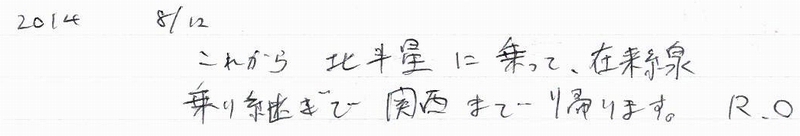 2014 8/12
これから 北斗星 に 乗って、在来線
乗り継ぎで 関西 まで 帰ります。 R.O